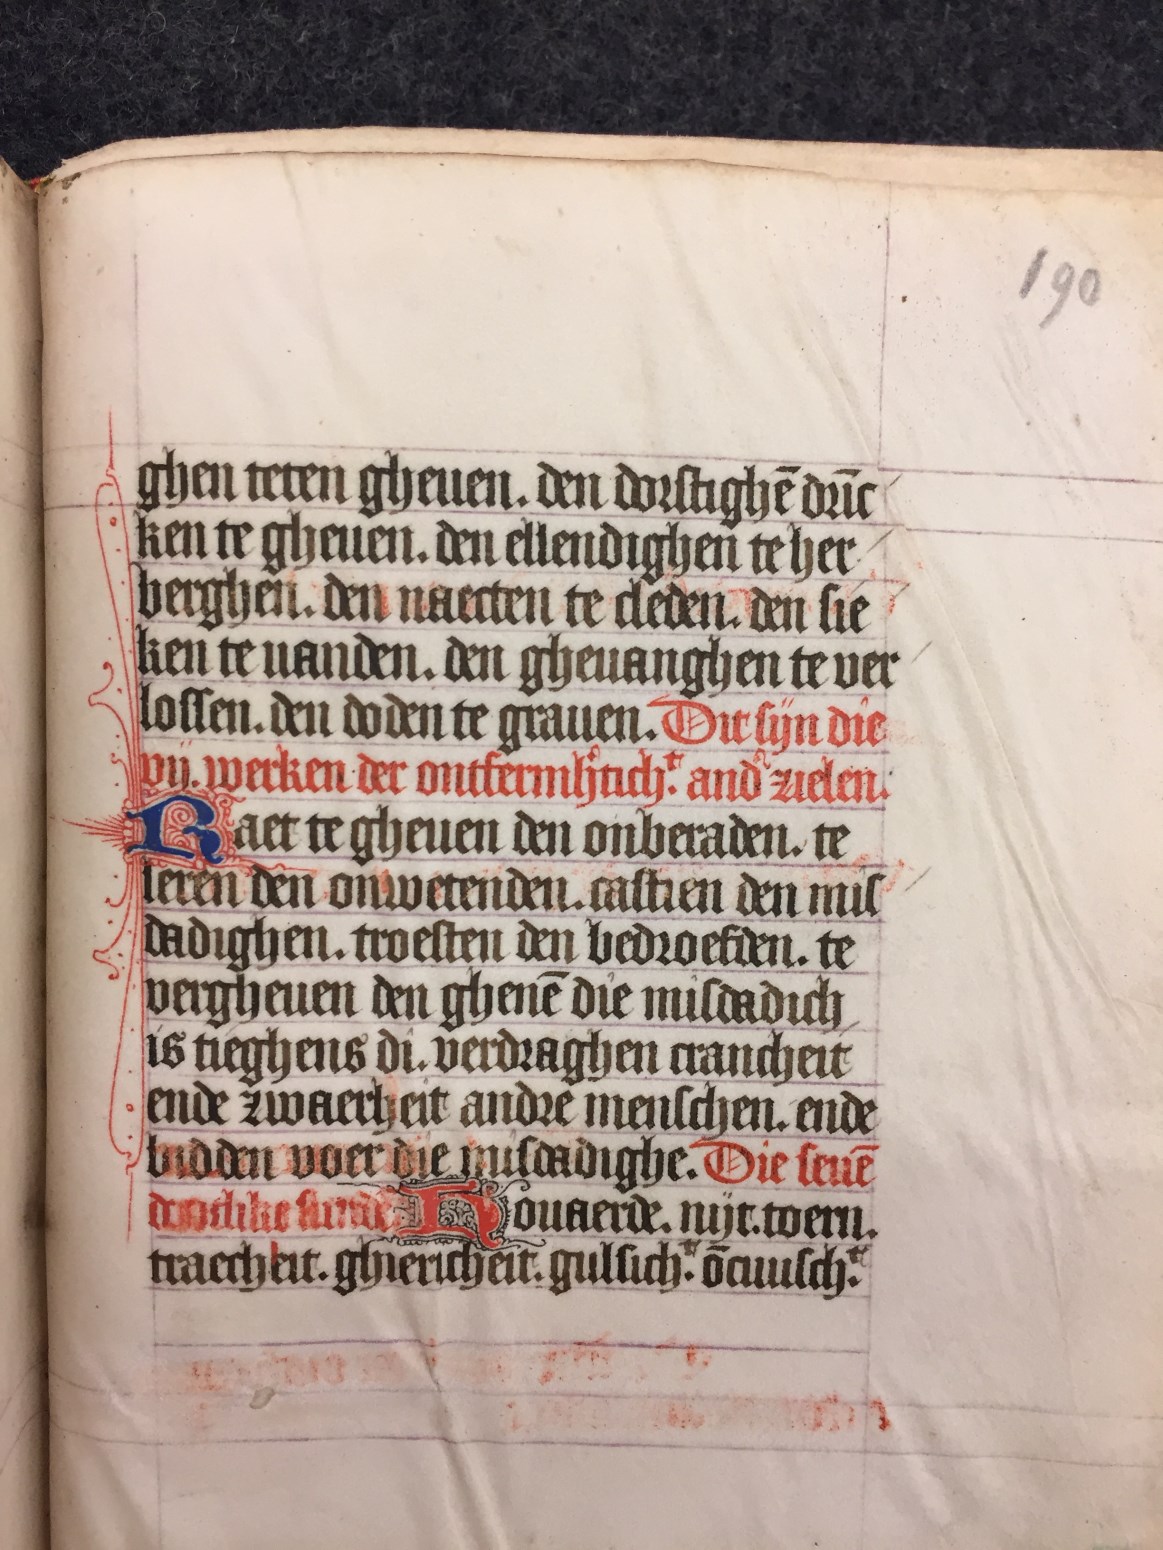 190
ghen teten gheuen. den dorstighē drīc
ken te gheuen. den ellendighen te her
berghen. den naecten te cleden. den sie
ken te uanden. den gheuanghen te ver
lossen. den doden te grauen. Dit sijn die
vij. werken der ontfermh'tich.t and' zielen.
Raet te gheuen den onberaden. te
leren den onwetenden. castien den mis
dadighen. troesten den bedroefden. te
vergheuen den ghenē die misdadich
is tieghens di. verdraghen crancheit
ende zwaerheit andre menschen. ende
bidden voer die misdadighe. Die seuē
dootlike sunde Houaerde. nijt. toern.
traecheit. ghiericheit. gulsich.t ōcuusch.t